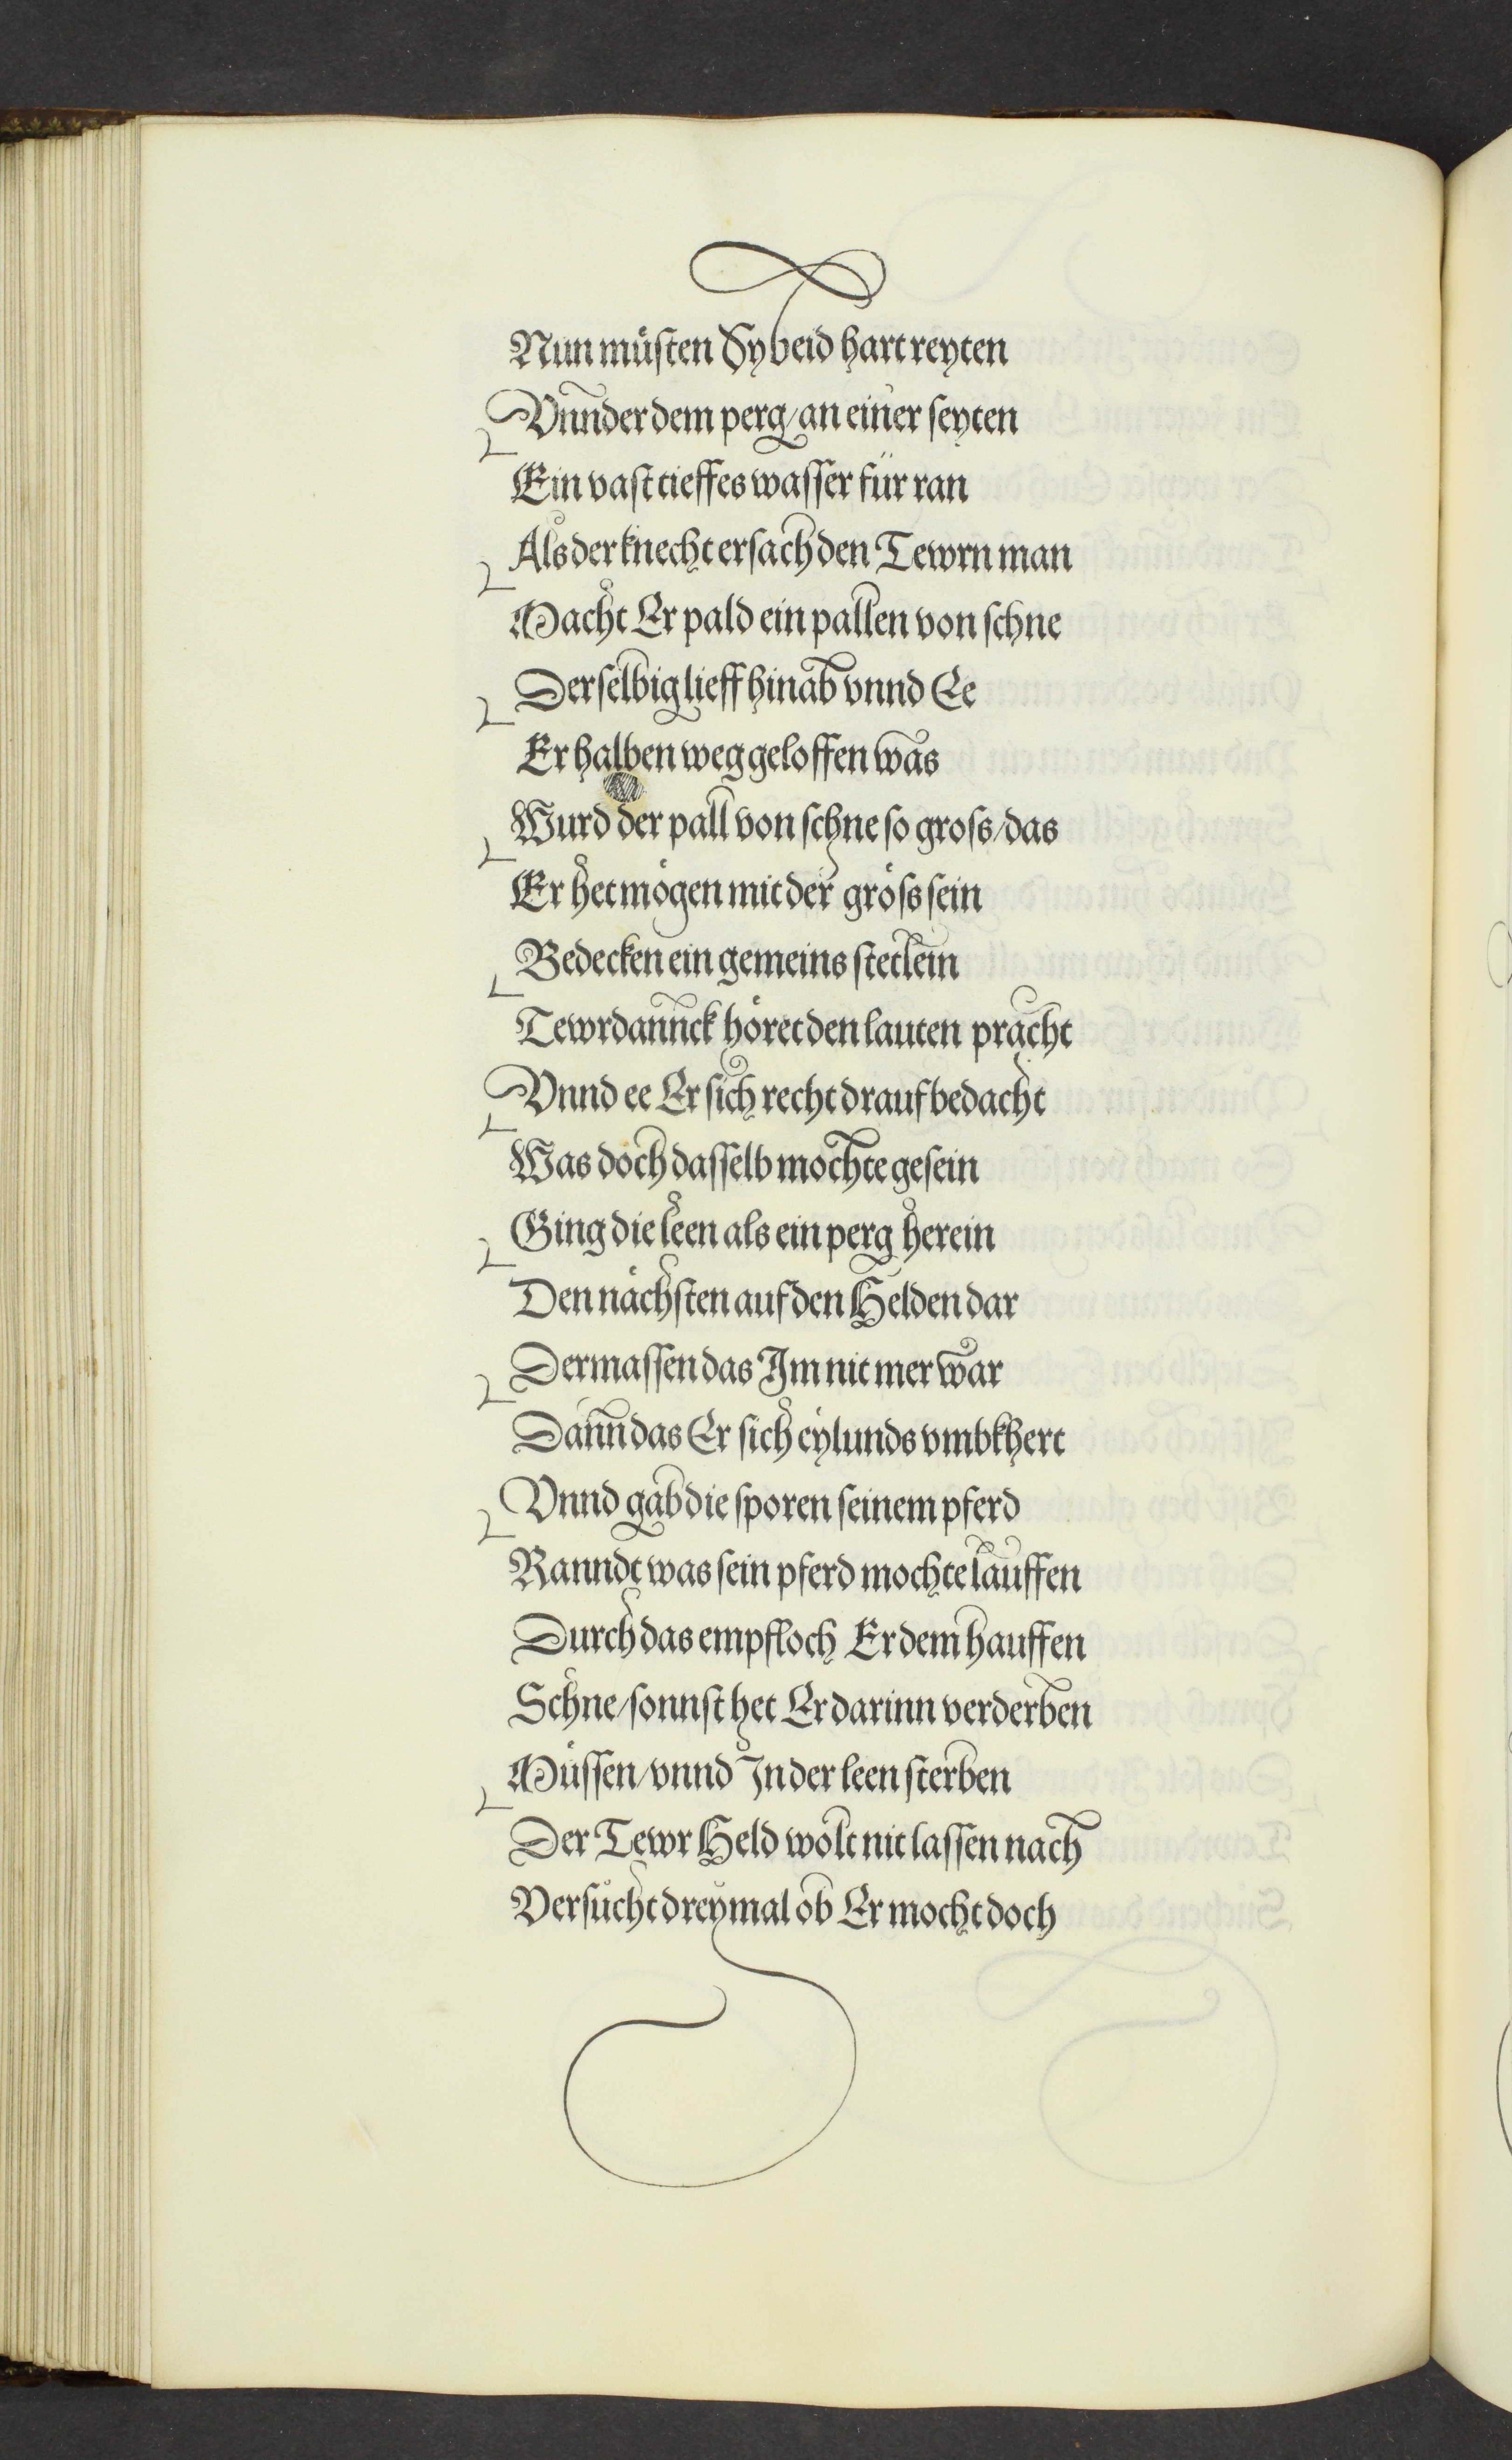 Nun müsten Sy beid hart reyten
Vnnder dem perg/an einer seyten
Ein vast tieffes wasser für ran
Als der knecht ersach den Tewrn man
Macht Er pald ein pallen von schne
Derselbig lieff hinab vnnd Ee
Er halben weg geloffen was
Wurd der pall von schne so gross/das
Er het mögen mit der gröss sein
Bedecken ein gemeins stetlein
Tewrdannck höret den lauten pracht
Vnnd ee Er sich recht drauf bedacht
Was doch dasselb mochte gesein
Ging die leen als ein perg herein
Den nächsten auf den Helden dar
Dermassen das Im nit mer war
Dann das Er sich eylunds vmbkhert
Vnnd gab die sporen seinem pferd
Ranndt was sein pferd mochte lauffen
Durch das empfloch Er dem hauffen
Schne/sonnst het Er darinn verderben
Müssen/vnnd In der leen sterben
Der Tewr Held wolt nit lassen nach
Versucht dreymal ob Er mocht doch